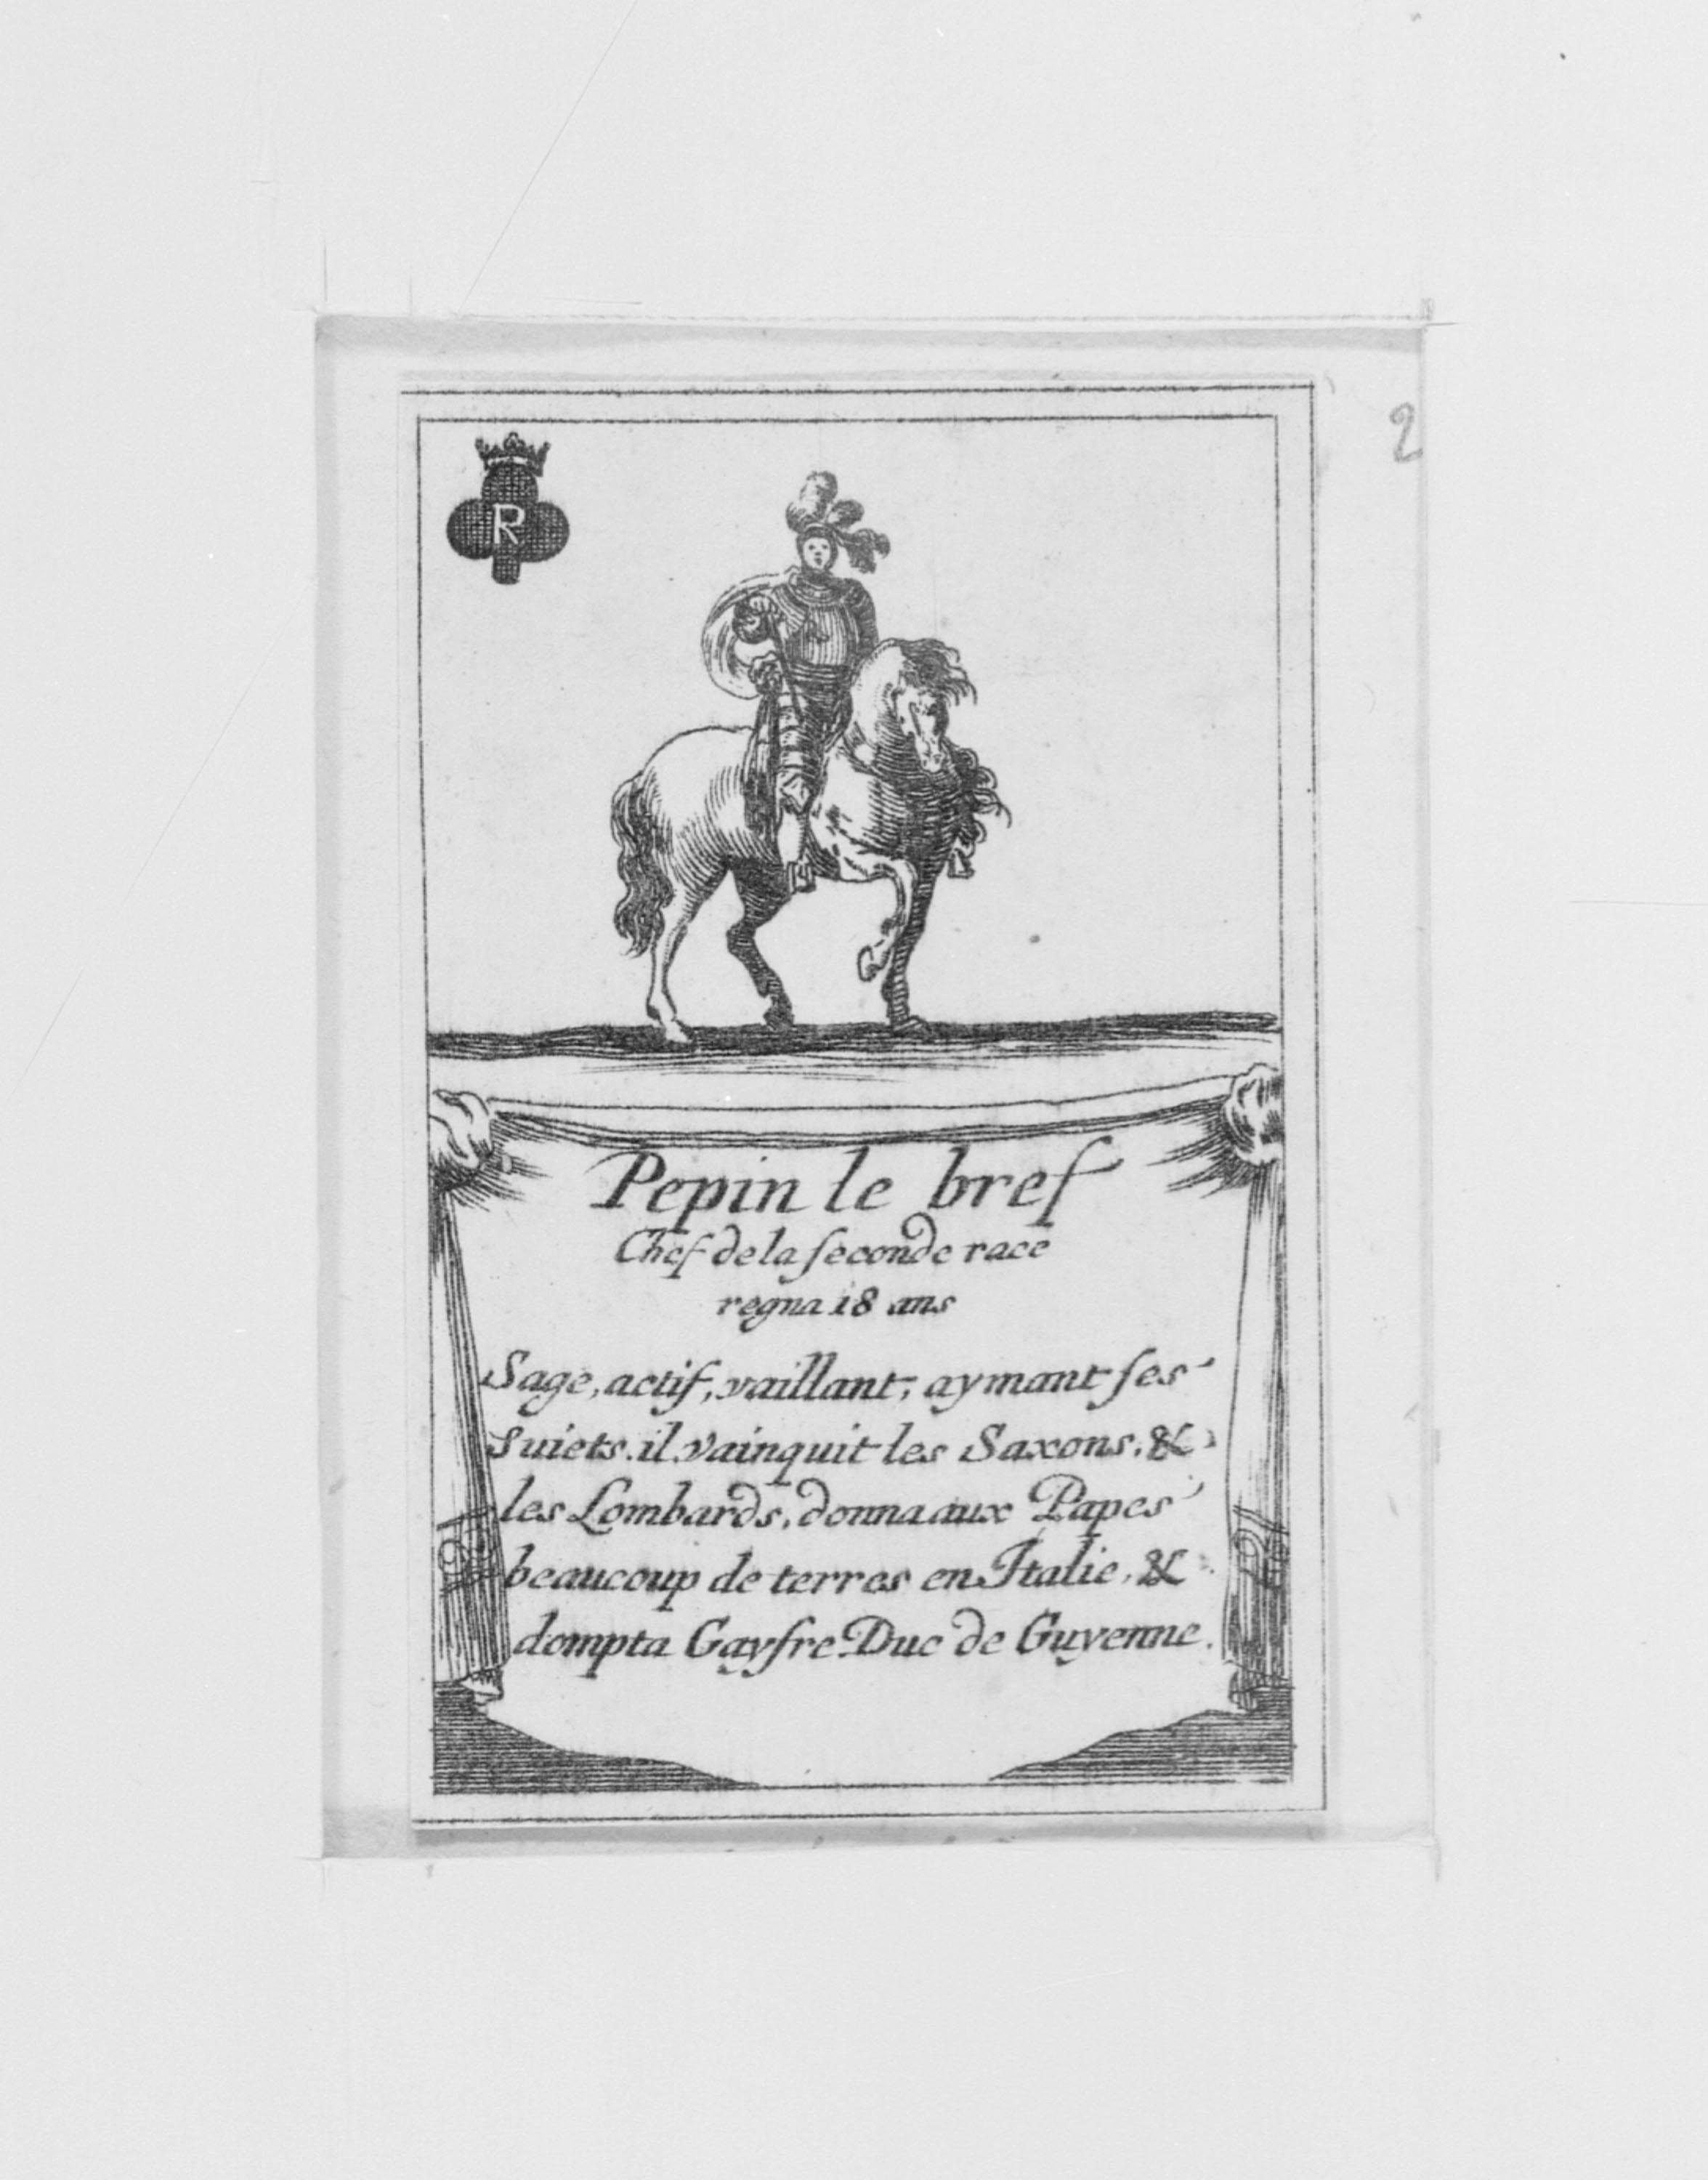 R
2
Pepin le bref
Chef de la ſeconde race
regna 18 ans
Sage, actif, vaillant, aymant ſes
Suiets. il vainquit les Saxons, &
les Lombards, donna aux Papes
beaucoup de terres en Italie, &
dompta Gayfre Duc de Guyenne.